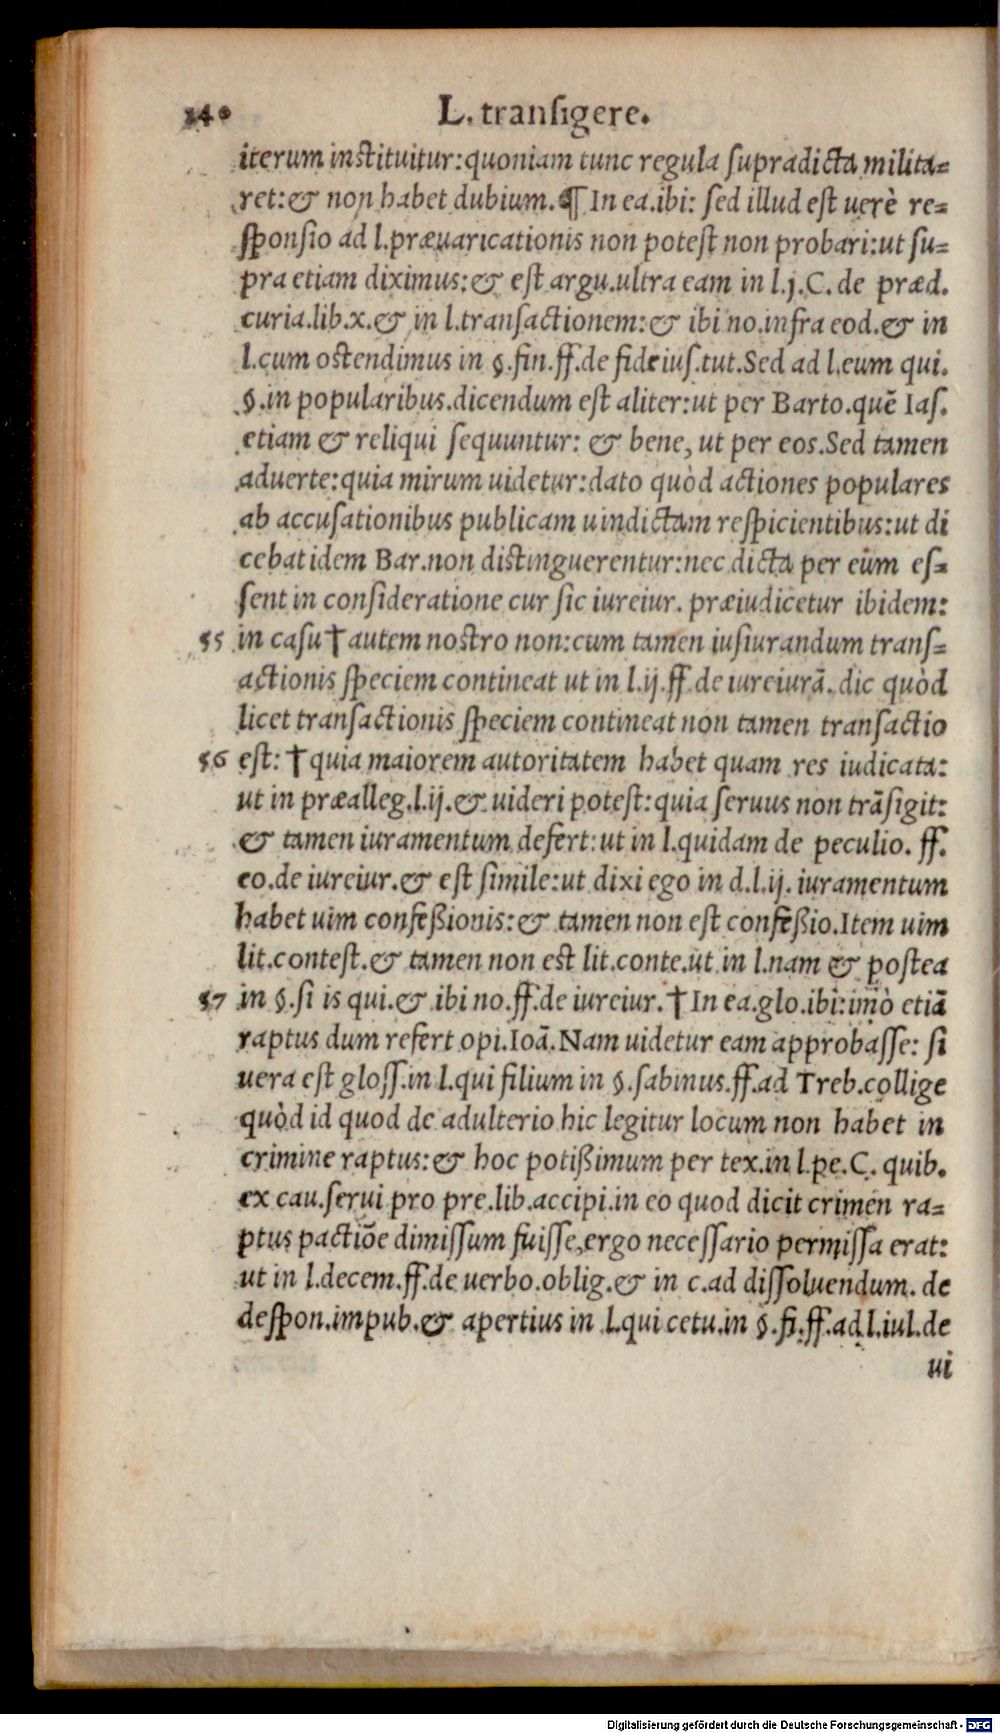 240 L. transigere.
iterum instituitur:quoniam tunc regula supradicta milita=
ret:& non habet dubium.¶ In ea.ibi: sed illud est uerè re=
sponsio ad l.præuaricationis non potest non probari:ut su=
pra etiam diximus:& est argu.ultra eam in l.j.C. de præd.
curia.lib.x.& in l.transactionem:& ibi no.infra eod.& in
l.cum ostendimus in §.fin.ff.de fideius.tut.Sed ad l.eum qui.
§.in popularibus.dicendum est aliter:ut per Barto.quē Ias.
etiam & reliqui sequuntur: & bene, ut per eos.Sed tamen
aduerte:quia mirum uidetur:dato quòd actiones populares
ab accusationibus publicam uindictam respicientibus:ut di
cebat idem Bar.non distinguerentur:nec dicta per eum es=
sent in consideratione cur sic iureiur. præiudicetur ibidem:
55 in casu † autem nostro non:cum tamen iusiurandum trans=
actionis speciem contineat ut in l.ij.ff.de iureiurā. dic quòd
licet transactionis speciem contineat non tamen transactio
56 est: † quia maiorem autoritatem habet quam res iudicata:
ut in præalleg.l.ij.& uideri potest:quia seruus non trāsigit:
& tamen iuramentum defert:ut in l.quidam de peculio. ff.
eo.de iureiur.& est simile:ut dixi ego in d.l.ij. iuramentum
habet uim confeßionis:& tamen non est confeßio.Item uim
lit.contest.& tamen non est lit.conte.ut in l.nam & postea
57 in §.si is qui.& ibi no.ff.de iureiur. † In ea.glo.ibi:imò etiā
raptus dum refert opi.Ioā.Nam uidetur eam approbasse: si
uera est gloss.in l.qui filium in §.sabinus.ff.ad Treb.collige
quòd id quod de adulterio hic legitur locum non habet in
crimine raptus:& hoc potißimum per tex.in l.pe.C. quib.
ex cau.serui pro pre.lib.accipi.in eo quod dicit crimen ra=
ptus pactiōe dimissum fuisse,ergo necessario permissa erat:
ut in l.decem.ff.de uerbo.oblig.& in c.ad dissoluendum. de
despon.impub.& apertius in l.qui cetu.in §.fi.ff.ad l.iul.de
ui
Digitalisierung gefördert durch die Deutsche Forschungsgemeinschaft - DFG